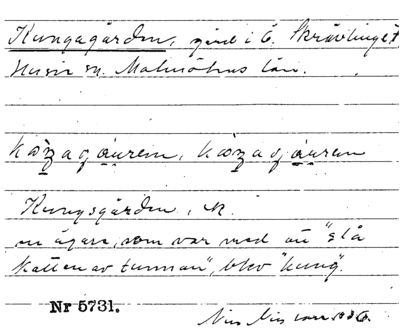 Kungagården, gård i Ö. Skrävlinge
Husie sn. Malmöhus län.
Kungsgården, N.
en ägare, som var med att "slå
katten av tunnan", blev "kung".
Nr 5731.
Nils Nilsson